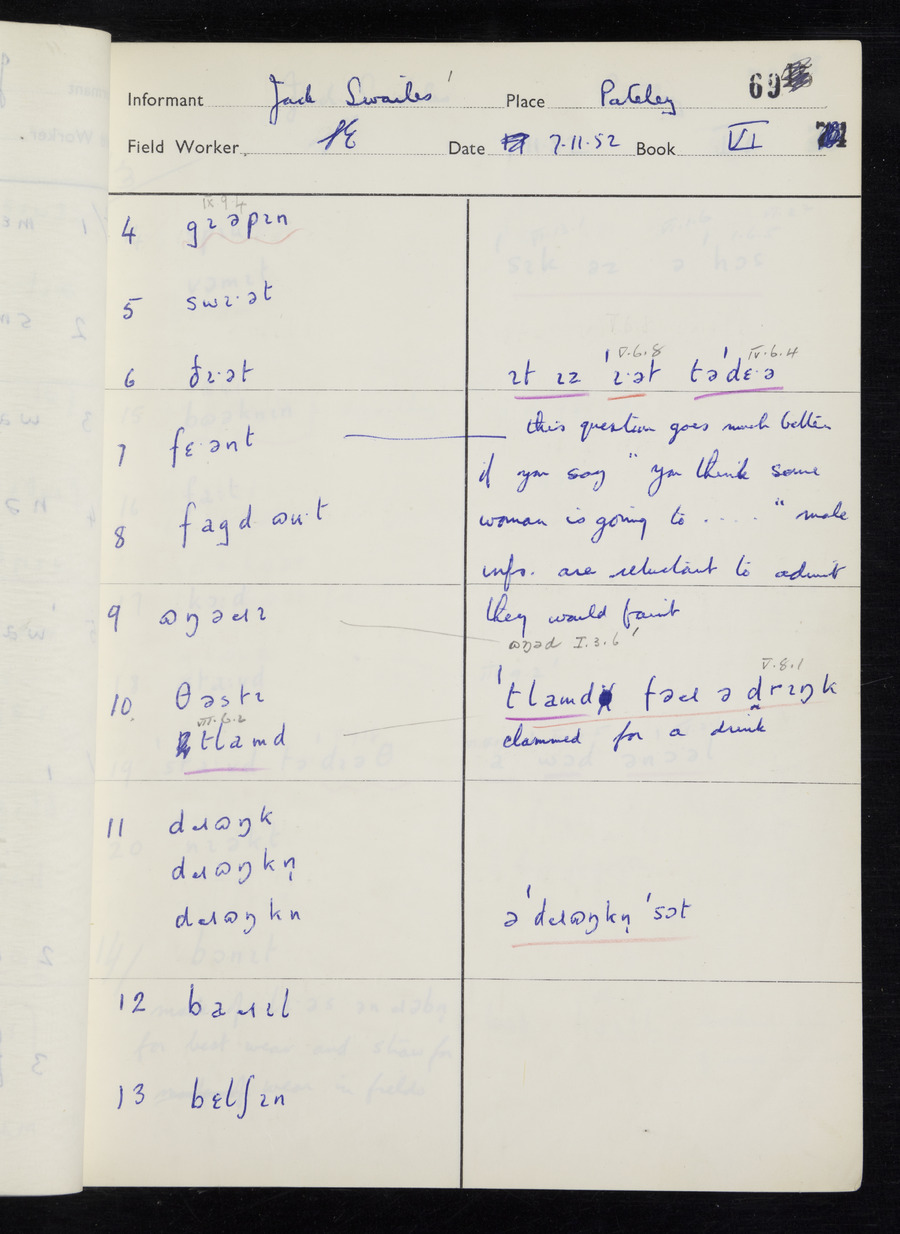 Informant Jack Swailes' Place Pateley 69
Field Worker SE Date 7.11.52 Book VI
IX 9.4
4 gɪəpɪn
5 swɪ·ət
6 ðɪ·ət
V.6.8 IV.6.4
ɪt ɪz 'ɪ·ət tə'dɛ·ə
7 fɛ·ənt
this question goes much better
if you say "you think some
woman is going to ...." male
8 fagd ɷu·t
infs. are reluctant to admit
they would faint
9 ɷŋəɹɪ
ɷŋəd I.3.6
10. θəstɪ
V.8.1
'tlamd fəɹ ə drɪŋk
clammed for a drink
VII.6.2
tlamd
11 dɹɷŋk
dɹɷŋkn̩
dɹɷŋkn
ə 'dɹɷŋkn̩ 'sɔt
12 baɹɪl
13 bɛlʃɪn